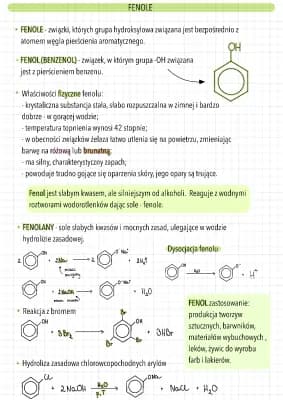 FENOLE
• FENOLE - związki, których grupa hydroksylowa związana jest bezpośrednio z
atomem węgla pierścienia aromatycznego.
• FENOL (BENZENOL) - związek, w którym grupa -OH związana
jest z pierścieniem benzenu.
OH
• Właściwości fizyczne fenolu:
- krystaliczna substancja stała, słabo rozpuszczalna w zimnej i bardzo
dobrze - w gorącej wodzie;
- temperatura topnienia wynosi 42 stopnie;
- w obecności związków żelaza łatwo utlenia się na powietrzu, zmieniając
barwę na różową lub brunatną;
- ma silny, charakterystyczny zapach;
- powoduje trudno gojące się oparzenia skóry, jego opary są trujące.
Fenol jest słabym kwasem, ale silniejszym od alkoholi. Reaguje z wodnymi
roztworami wodorotlenków dając sole - fenole.
• FENOLANY - sole słabych kwasów i mocnych zasad, ulegające w wodzie
hydrolizie zasadowej.
Dysocjacja fenolu
2 OH + 2Na → 2 O⁻Na⁺ + 2H₂↑
OH H₂O O⁻ + H⁺
OH + 2NaOH → O⁻Na⁺ + H₂O
• Reakcja z bromem
OH + 3Br₂ → Br OH Br Br + 3HBr
FENOL zastosowanie:
produkcja tworzyw
sztucznych, barwników,
materiałów wybuchowych,
leków, żywic do wyrobu
farb i lakierów.
• Hydroliza zasadowa chlorowcopochodnych arylów
Cl + 2 NaOH H₂O p,T → ONa + NaCl + H₂O